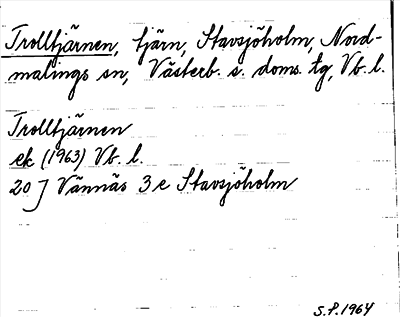 Trolltjärnen, tjärn, Stavsjöholm, Nord-
malings sn, Västerb. s. doms. tg, Vb. l.
Trolltjärnen
ek (1963) Vb. l.
20 J Vännäs 3 e Stavsjöholm
S.P. 1964